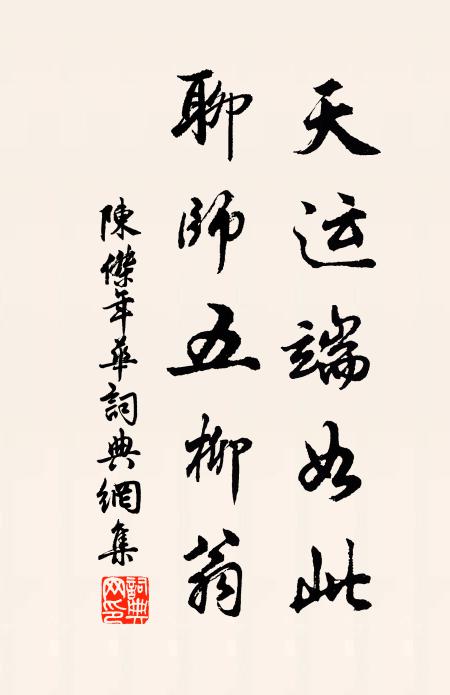 天运端如此
聊師五柳翁
陳傑年華詞典網集
詞典網印